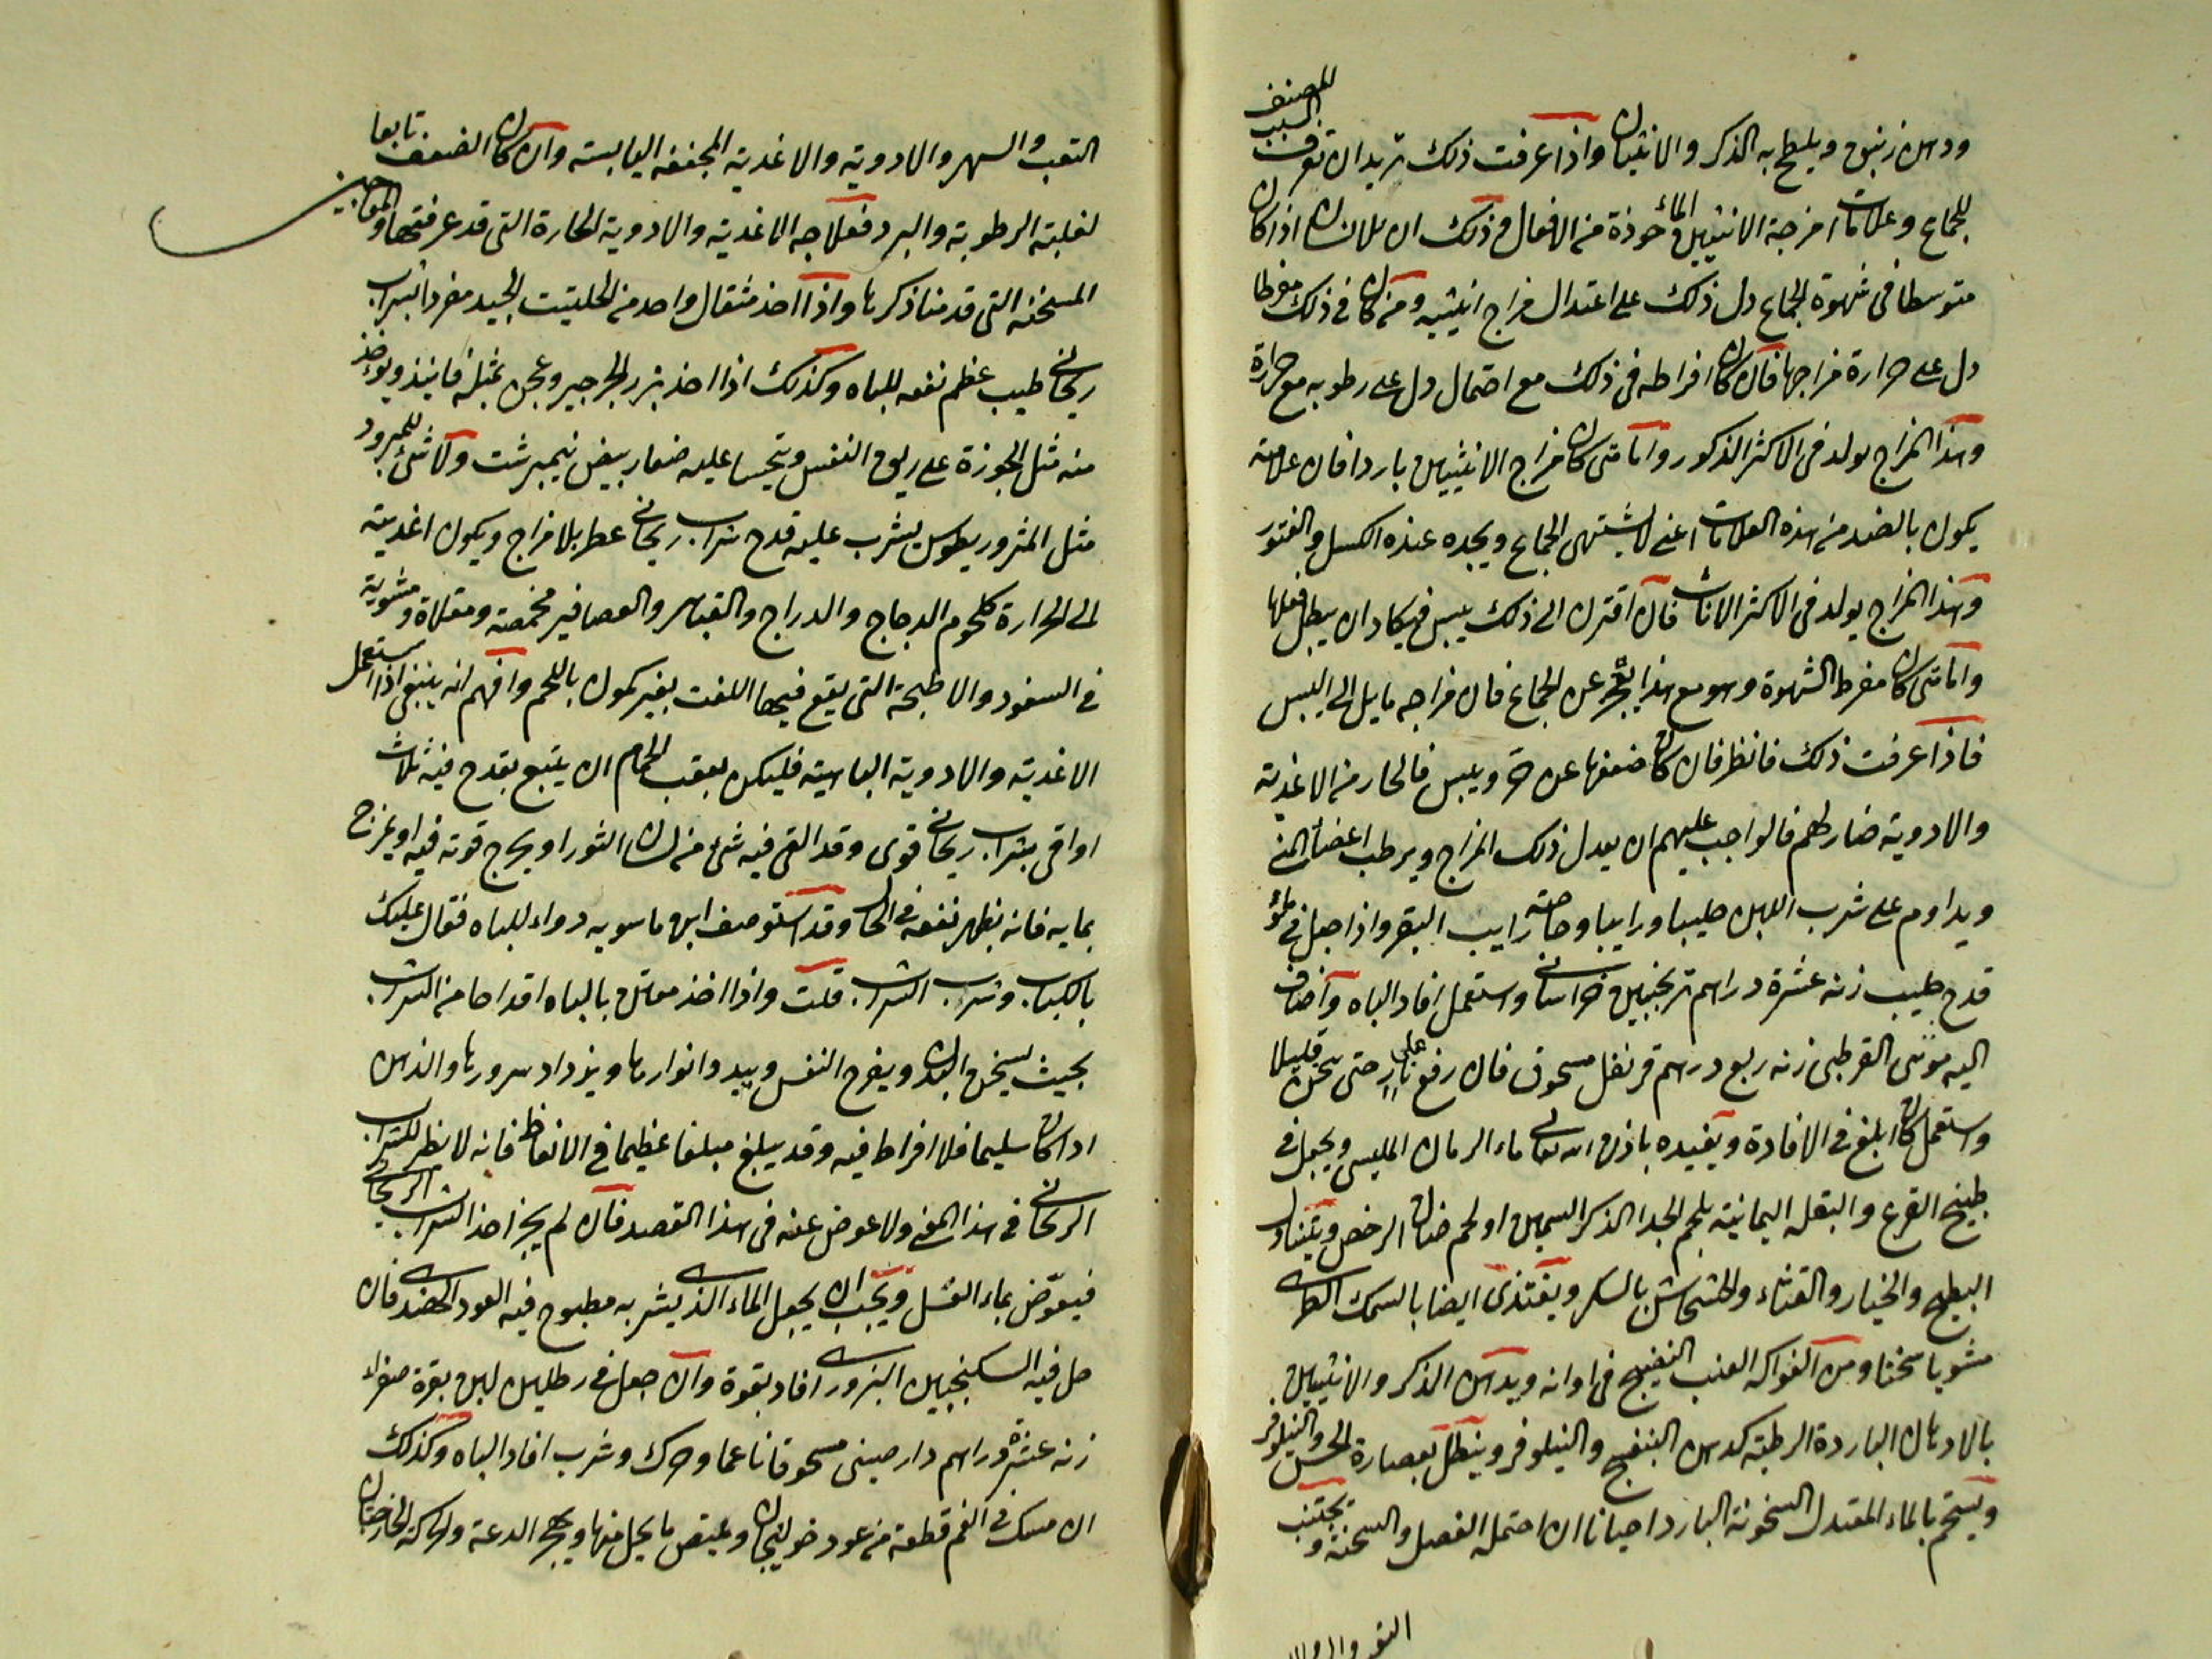 ودهن زنبق ويلطخ به الذكر والانثيان واذا عرفت ذلك تريد ان تعرف السبب المضعف
للجماع وعلامات امزجة الانثيين المأخوذة من الافعال فى ذلك ان الانسان اذا كان
متوسطا فى شهوة الجماع دل ذلك على اعتدال مزاج انثييه ومن كان فى ذلك مفرطا
دل على حرارة مزاجها فان كان افراطه فى ذلك مع احتمال دل على رطوبه مع حرارة
وهذا المزاج يولد فى الاكثر الذكور واما متى كان مزاج الانثيين باردا فان علامته
يكون بالضد من هذه العلامات اعنى لا يشتهى الجماع ويجده عنده الكسل والفتور
وهذا المزاج يولد فى الاكثر الاناث فان اقترن الى ذلك يبس فيكاد ان يبطل فعلها
واما متى كان مفرط الشهوة وهو مع هذا يعجز عن الجماع فان مزاجه مايل الى اليبس
فاذا عرفت ذلك فانظر فان كان ضعفها عن حر ويبس فالحار من الاغذية
والادوية ضار لهم فالواجب عليهم ان يعدل ذلك المزاج ويرطب اعضاء المنى
ويداوم على شرب اللبن حليبا ورايبا وخاصة رايب البقر واذا جعل فى ملؤ
قدح حليب زنه عشرة دراهم ترنجبين خراسانى واستعمل افاد الباه واضاف
اليه موسى القرطبى زنه ربع درهم قرنفل مسحوق فان رفع على نار حتى سخن قليلا
واستعمل كان ابلغ فى الافادة ويفيده باذن الله تعالى ماء الرمان المليسى ويجعل فى
طبيخ القرع والبقلة اليمانية بلحم الجدا الذكر السمين او لحم ضان الرخص ويتناول
البطيخ والخيار والقثاء والخشخاش بالسكر ويغتذى ايضا بالسمك الطرى
مشويا سخنا ومن الفواكه العنب النضيج فى اوانه ويدهن الذكر والانثيين
بالادهان الباردة الرطبة كدهن البنفسج والنيلوفر وينطل بعصارة الخس والنيلوفر
ويستحم بالماء المعتدل السخونة البارد احيانا ان احتمله الفصل والسحنة ويجتنب
التعب والسهر والادوية والاغذية المجففه اليابسة وان كان الضعف تابعا
لغلبة الرطوبة والبرد فعلاجه الاغذية والادوية الحارة التى قد عرفتها والمعاجين
المسخنة التى قدمنا ذكرها واذا اخذ مثقال واحد من الحلتيت الجيد مفردا بشراب
ريحانى طيب عظم نفعه للباه وكذلك اذا اخذ بزر الجرجير وعجن بمثله فانيذ ويؤخذ
منه مثل الجوزة على ريق النفس ويتحسا عليه صفار بيض نيمبرشت ولا شئ للمبرود
مثل المثروريطوس يشرب عليه قدح شراب ريحانى عطر بلا مزاج ويكون اغذيته
الى الحرارة كلحوم الدجاج والدراج والقنابر والعصافير محمصة ومقلاة ومشوية
فى السفود والاطبخة التى يقع فيها اللفت بغير كمون باللحم وافهم انه ينبغى اذا استعمل
الاغذية والادوية الباهية فليكن بعقب الحمام ان يتبع بقدح فيه ثلاث
اواقى شراب ريحانى قوى وقد القى فيه شئ من لسان الثور او يخرج قوته فيه او يمزج
بمايه فانه يظهر نفعه فى الحال وقد استوصف ابن ماسويه دواء للباه فقال عليك
بالكباب وشراب الشراب قلت واذا اخذ معتن بالباه اقداحا من الشراب
بحيث يسخن البدن ويفرح النفس ويبد وانوارها ويزداد سرورها والذهن
اذا كان سليما فلا افراط فيه وقد يبلغ مبلغا عظيما فى الانعاظ فانه لا نظير للشراب
الريحانى فى هذا المعنى ولا عوض عنه فى هذا القصد فان لم يجز اخذ الشراب الريحانى
فيعوض بماء العسل ويجب ان يجعل الماء الذى يشربه مطبوخ فيه العود الهندى فان
حل فيه السكنجبين البزورى افاد بقوة وان جعل فى رطلين لبن بقرة صفراء
زنه عشرة دراهم دارصينى مسحوقا ناعما وحرك وشرب افاد الباه وكذلك
ان مسك فى الفم قطعة من عود خولنجان وعتص ما يحيل منها ويهجر الدعة والحركة الخارجتان
التعب والسهر والاد